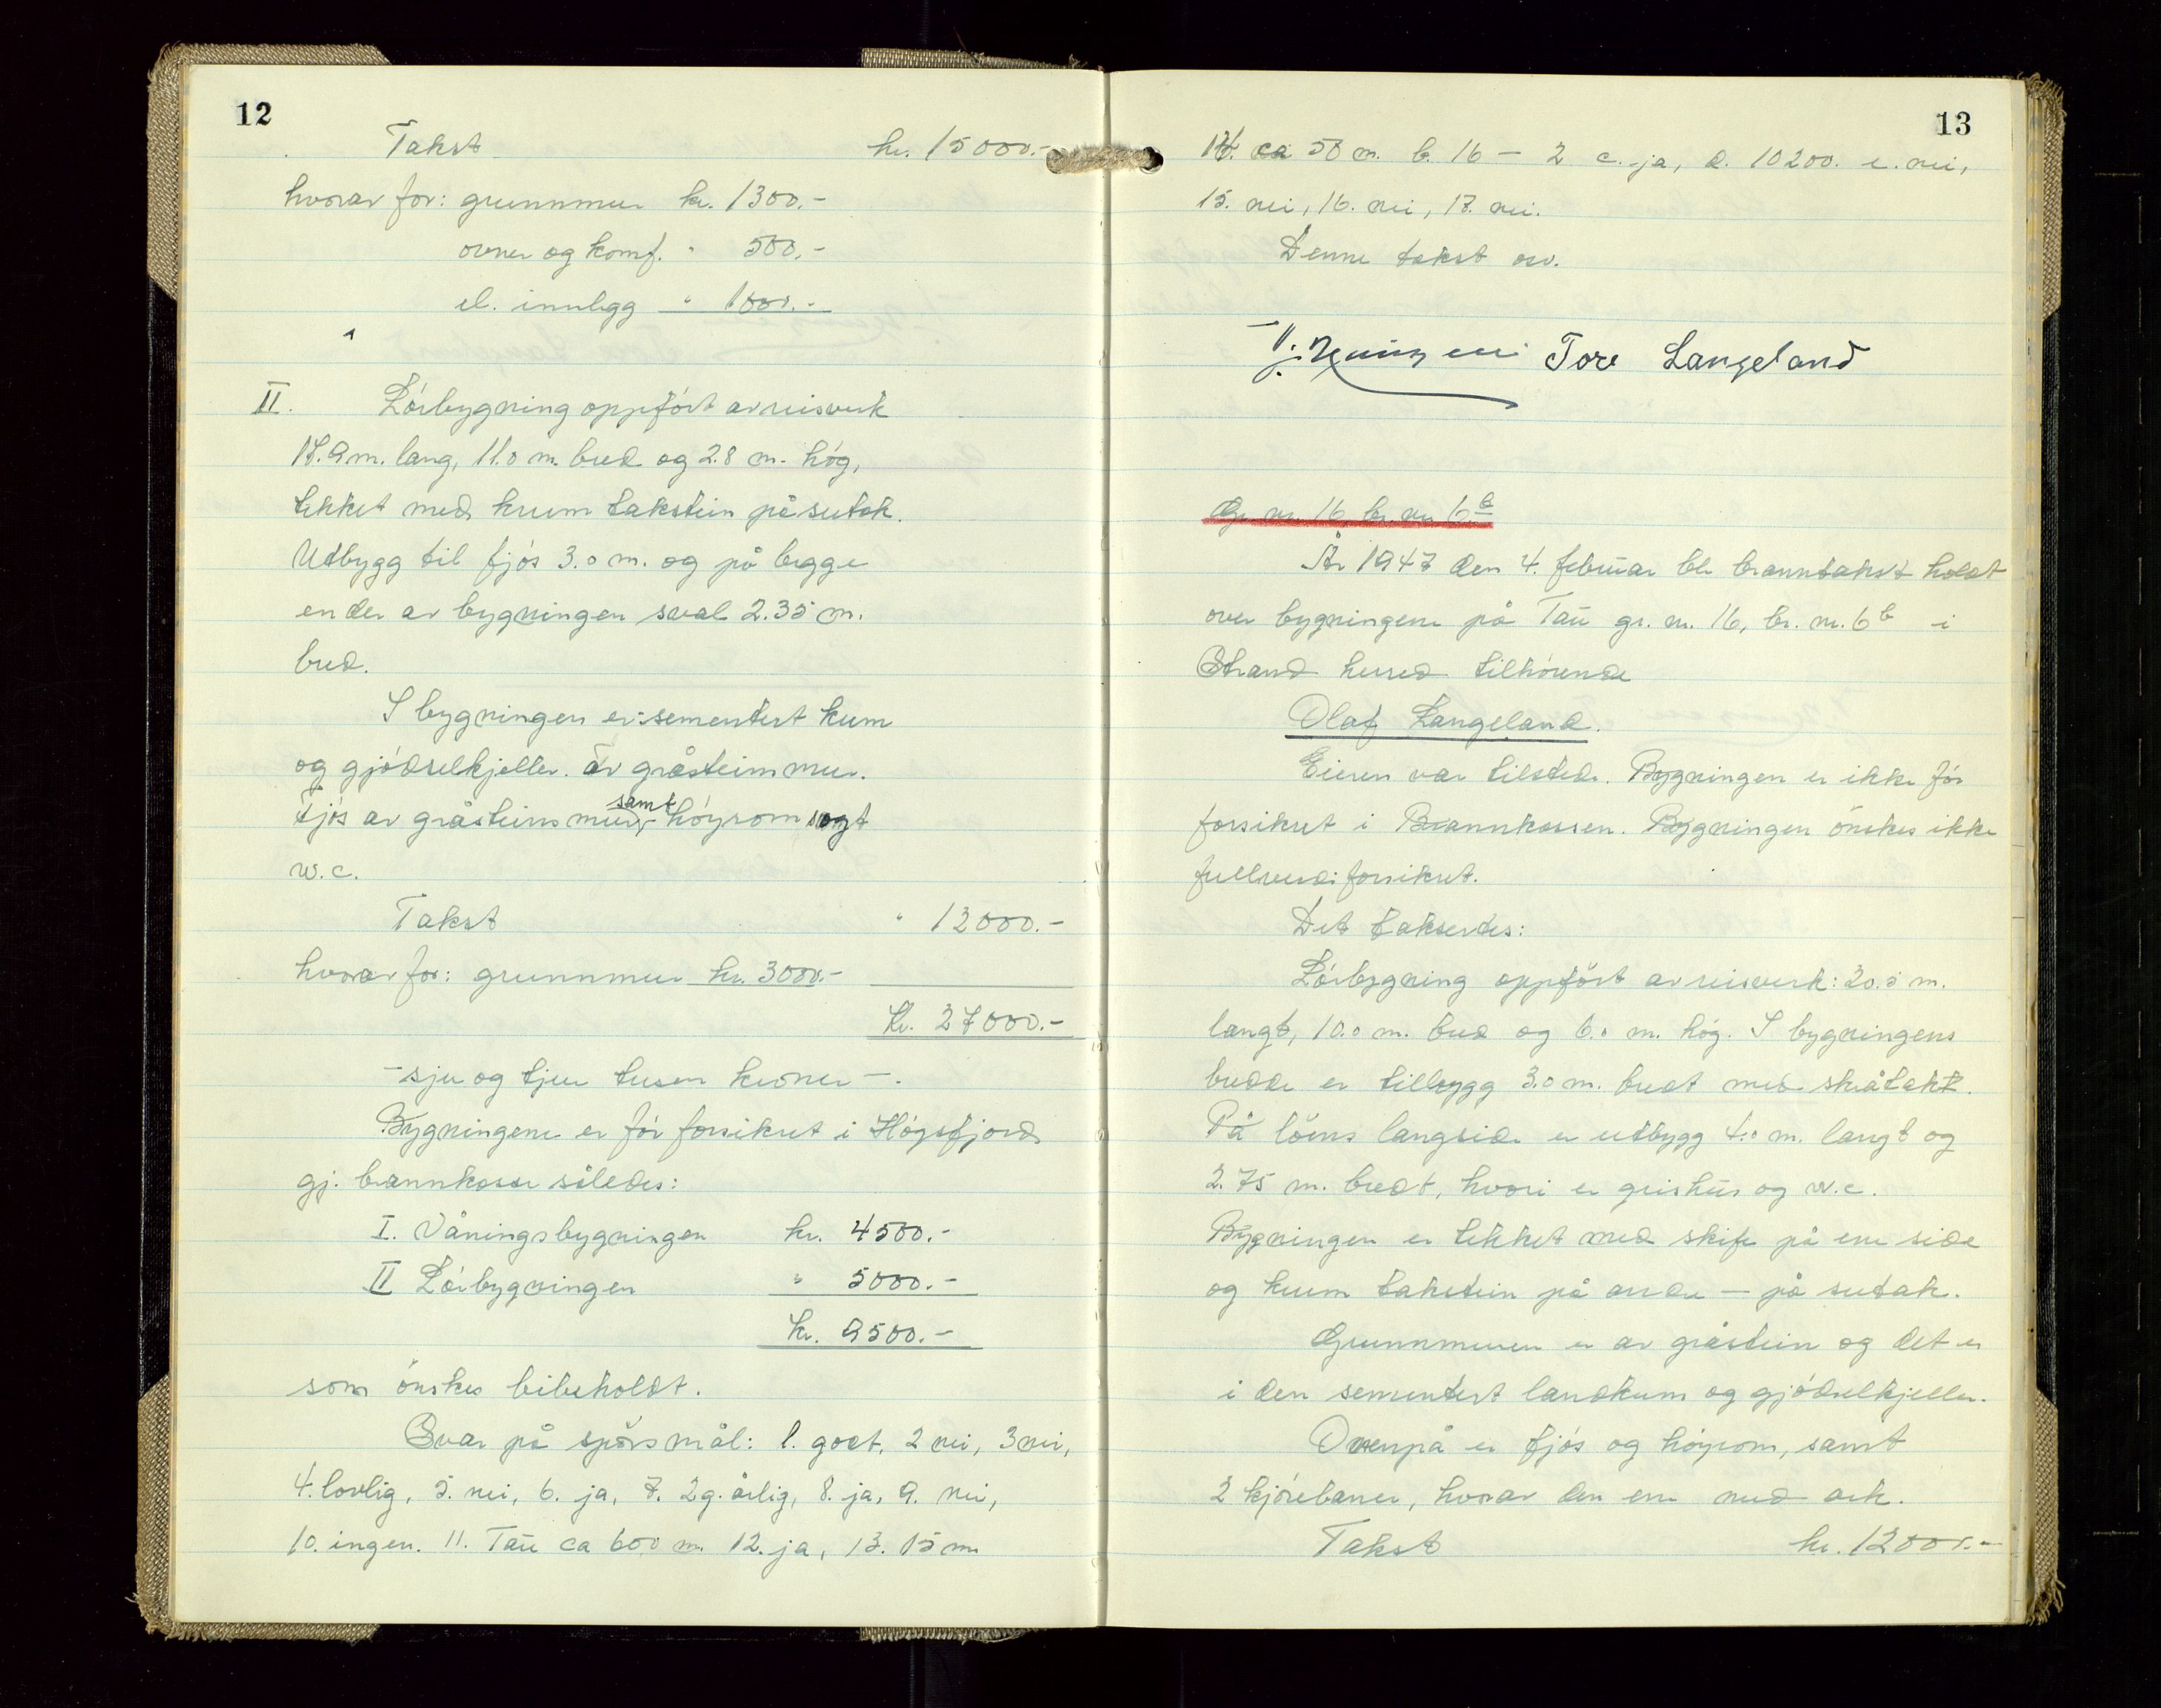 12
Takst kr. 15000.-
hvorav for: grunnmur kr. 1300.-
ovner og komf. " 500.-
el. innlegg " 1000.-
II. Lóebygning oppfórt av reisverk
17.9 m. lang, 11.0 m. bred og 2.8 m. hóg,
tekket med krum takstein på sutak.
Utbygg til fjós 3.0 m. og på begge
ender av bygningen sval 2.35 m.
bred.
I bygningen er: sementert kum
og gjódselkjeller av gråsteinmur.
Fjós av gråsteinsmur, samt hóyrom
w.c.
Takst " 12000.-
hvorav for: grunnmur kr. 3000.-
Kr. 27000.-
- sju og tjue tusen kroner -.
Bygningene er fór forsikret i Hógsfjord
gj. brannkasse således:
I. Våningsbygningen kr. 4500.-
II Lóebygningen " 5000.-
kr. 9500.-
som ónskes bibeholdt.
Svar på spórsmål: 1. godt, 2 nei, 3 nei,
4. lovlig, 5. nei, 6. ja, 7. 2 g. årlig, 8. ja, 9. nei,
10. ingen. 11. Tau ca 600 m. 12. ja, 13. 15 m
13
14. ca 50 m. b. 16 - 2 c. ja, d. 10200. e. nei,
15. nei, 16. nei, 17. nei.
Denne takst osv.
Tore Langeland
Gr. nr. 16, br. nr. 6 b
År 1947 den 4. februar ble branntakst holdt
over bygningene på Tau gr. nr. 16, br. nr. 6 b i
Strand herred tilhórende
Olaf Langeland.
Eieren var tilstede. Bygningen er ikke fór
forsikret i Brannkassen. Bygningen ónskes ikke
fullverdiforsikret.
Det takserdes:
Lóebygning oppfórt av reisverk: 20.5 m.
langt, 10.0 m. bred og 6.0 m. hóg. I bygningens
bredde er tilbygg 3.0 m. bredt med skråtakt.
På lóens langside er utbygg 4.0 m. langt og
2.75 m. bredt, hvori er grishus og w.c.
Bygningen er tekket med skifer på ene side
og krum takstein på andre - på sutak.
Grunnmuren er av gråstein og det er
i den sementert landkum og gjódselkjeller.
Ovenpå er fjós og hóyrom, samt
2 kjórebaner, hvorav den ene med ark.
Takst kr. 12000.-